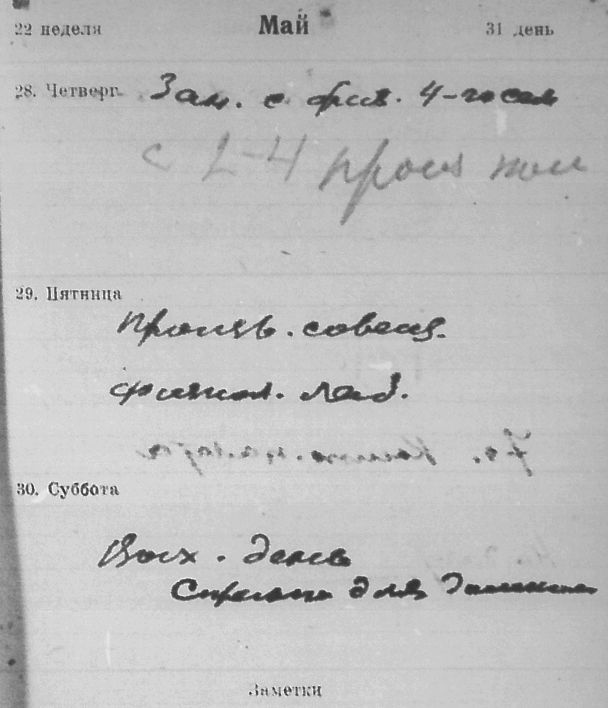 22 неделя Май 31 день
28. Четверг Зан. с физ. 4-
с 2-4
29. Пятница
Произв. совещ.
Физиол. лаб.
30. Суббота
Вых. день
для
Заметки